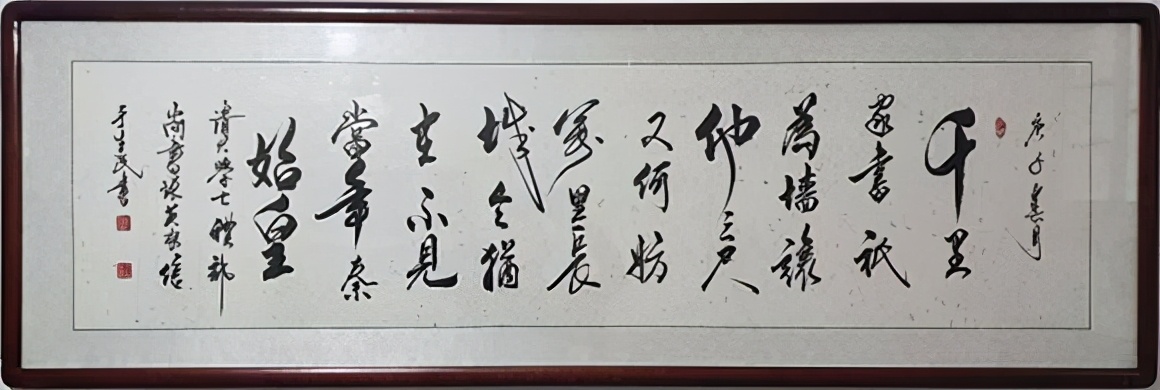 庚子夏月
千里
家書祇
為墙讓
他三尺
又何妨
萬里長
城今猶
在不見
當年秦
始皇
清大學士禮部
尚書張英家信
于生民書